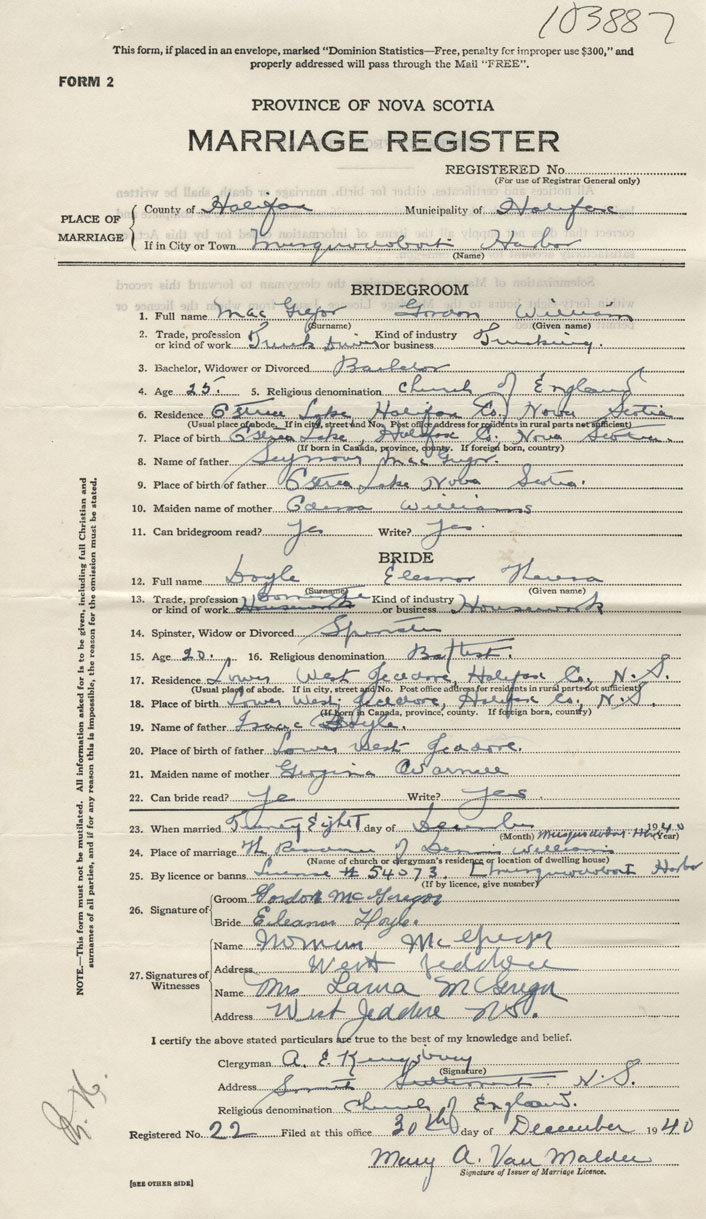 103887
This form, if placed in an envelope, marked "Dominion Statistics—Free, penalty for improper use $300," and
properly addressed will pass through the Mail "FREE".
FORM 2
PROVINCE OF NOVA SCOTIA
MARRIAGE REGISTER
REGISTERED No.
(For use of Registrar General only)
PLACE OF MARRIAGE
County of Halifax Municipality of Halifax
If in City or Town Musquodoboit Harbor
(Name)
BRIDEGROOM
1. Full name Mac Gregor Gordon William
(Surname) (Given name)
2. Trade, profession or kind of work Truck Driver Kind of industry or business Trucking.
3. Bachelor, Widower or Divorced Bachelor
4. Age 25. 5. Religious denomination Church of England
6. Residence Lake, Halifax Co, Nova Scotia
(Usual place of abode. If in city, street and No. Post office address for residents in rural parts not sufficient)
7. Place of birth Lake, Halifax Co. Nova Scotia.
(If born in Canada, province, county. If foreign born, country)
8. Name of father Seymour MacGregor.
9. Place of birth of father Lake Nova Scotia.
10. Maiden name of mother Williams
11. Can bridegroom read? Yes Write? Yes.
BRIDE
12. Full name Doyle Eleanor Theresa
(Surname) (Given name)
13. Trade, profession or kind of work Domestic Housework Kind of industry or business Housework
14. Spinster, Widow or Divorced Spinster
15. Age 20. 16. Religious denomination Baptist.
17. Residence Lower West Jeddore, Halifax Co, N. S.
(Usual place of abode. If in city, street and No. Post office address for residents in rural parts not sufficient)
18. Place of birth Lower West Jeddore, Halifax Co, N. S.
(If born in Canada, province, county. If foreign born, country)
19. Name of father Isaac Doyle.
20. Place of birth of father Lower West Jeddore.
21. Maiden name of mother Georgina
22. Can bride read? Yes Write? Yes.
23. When married Twenty Eight day of December 1940
(Month) (Year)
24. Place of marriage The Residence of Dennis Williams Musquodoboit Hbr
(Name of church or clergyman's residence or location of dwelling house)
25. By licence or banns License # 54073. Musquodoboit Harbor
(If by licence, give number)
26. Signature of
Groom Gordon McGregor
Bride Eleanor Doyle.
27. Signatures of Witnesses
Name Norman McGregor
Address West Jeddore
Name Mrs Laura McGregor
Address West Jeddore N.S.
I certify the above stated particulars are true to the best of my knowledge and belief.
Clergyman A. E. Kingsbury
(Signature)
Address N. S.
Religious denomination Church of England.
Registered No. 22 Filed at this office 30th day of December 1940
Mary A. Van Malder
Signature of Issuer of Marriage Licence.
[SEE OTHER SIDE]
NOTE.—This form must not be mutilated. All information asked for is to be given, including full Christian and
surnames of all parties, and if for any reason this is impossible, the reason for the omission must be stated.